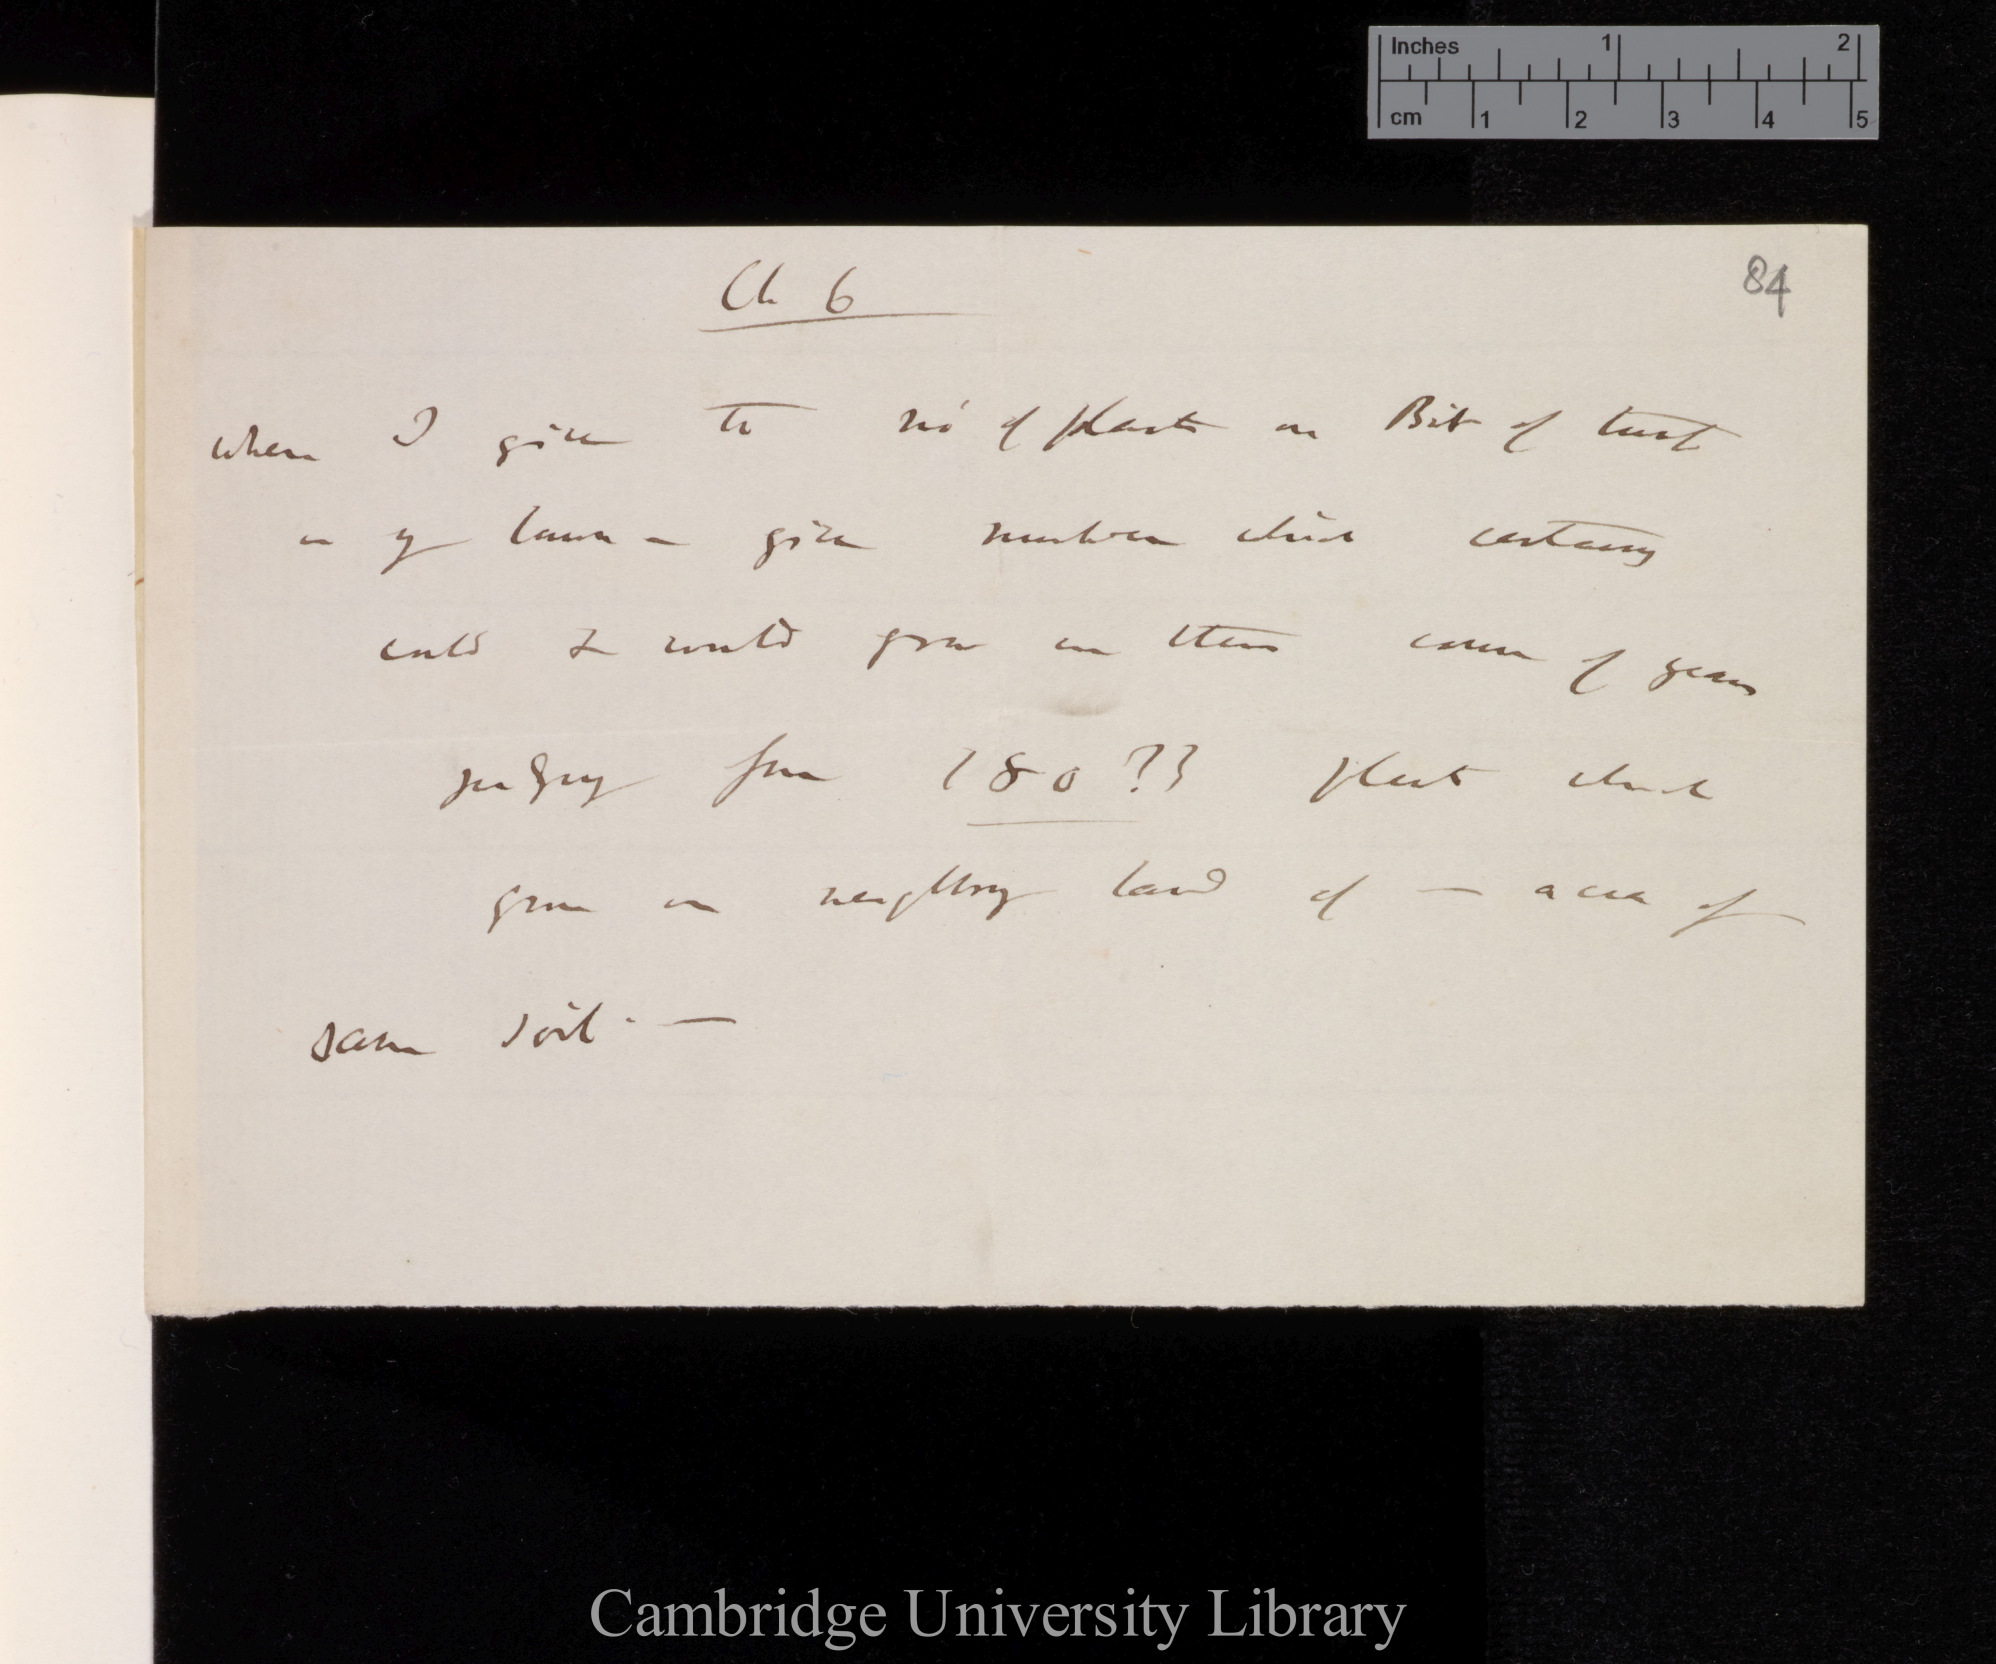 Inches 1 2
cm 1 2 3 4 5
84
Ch 6
When I give the no of plants on Bit of turf
in my lawn — give number which certainly
could & would grow in the course of years
judging from 180?? plants which
grow on neighbring land of — acre of
same soil. —
Cambridge University Library